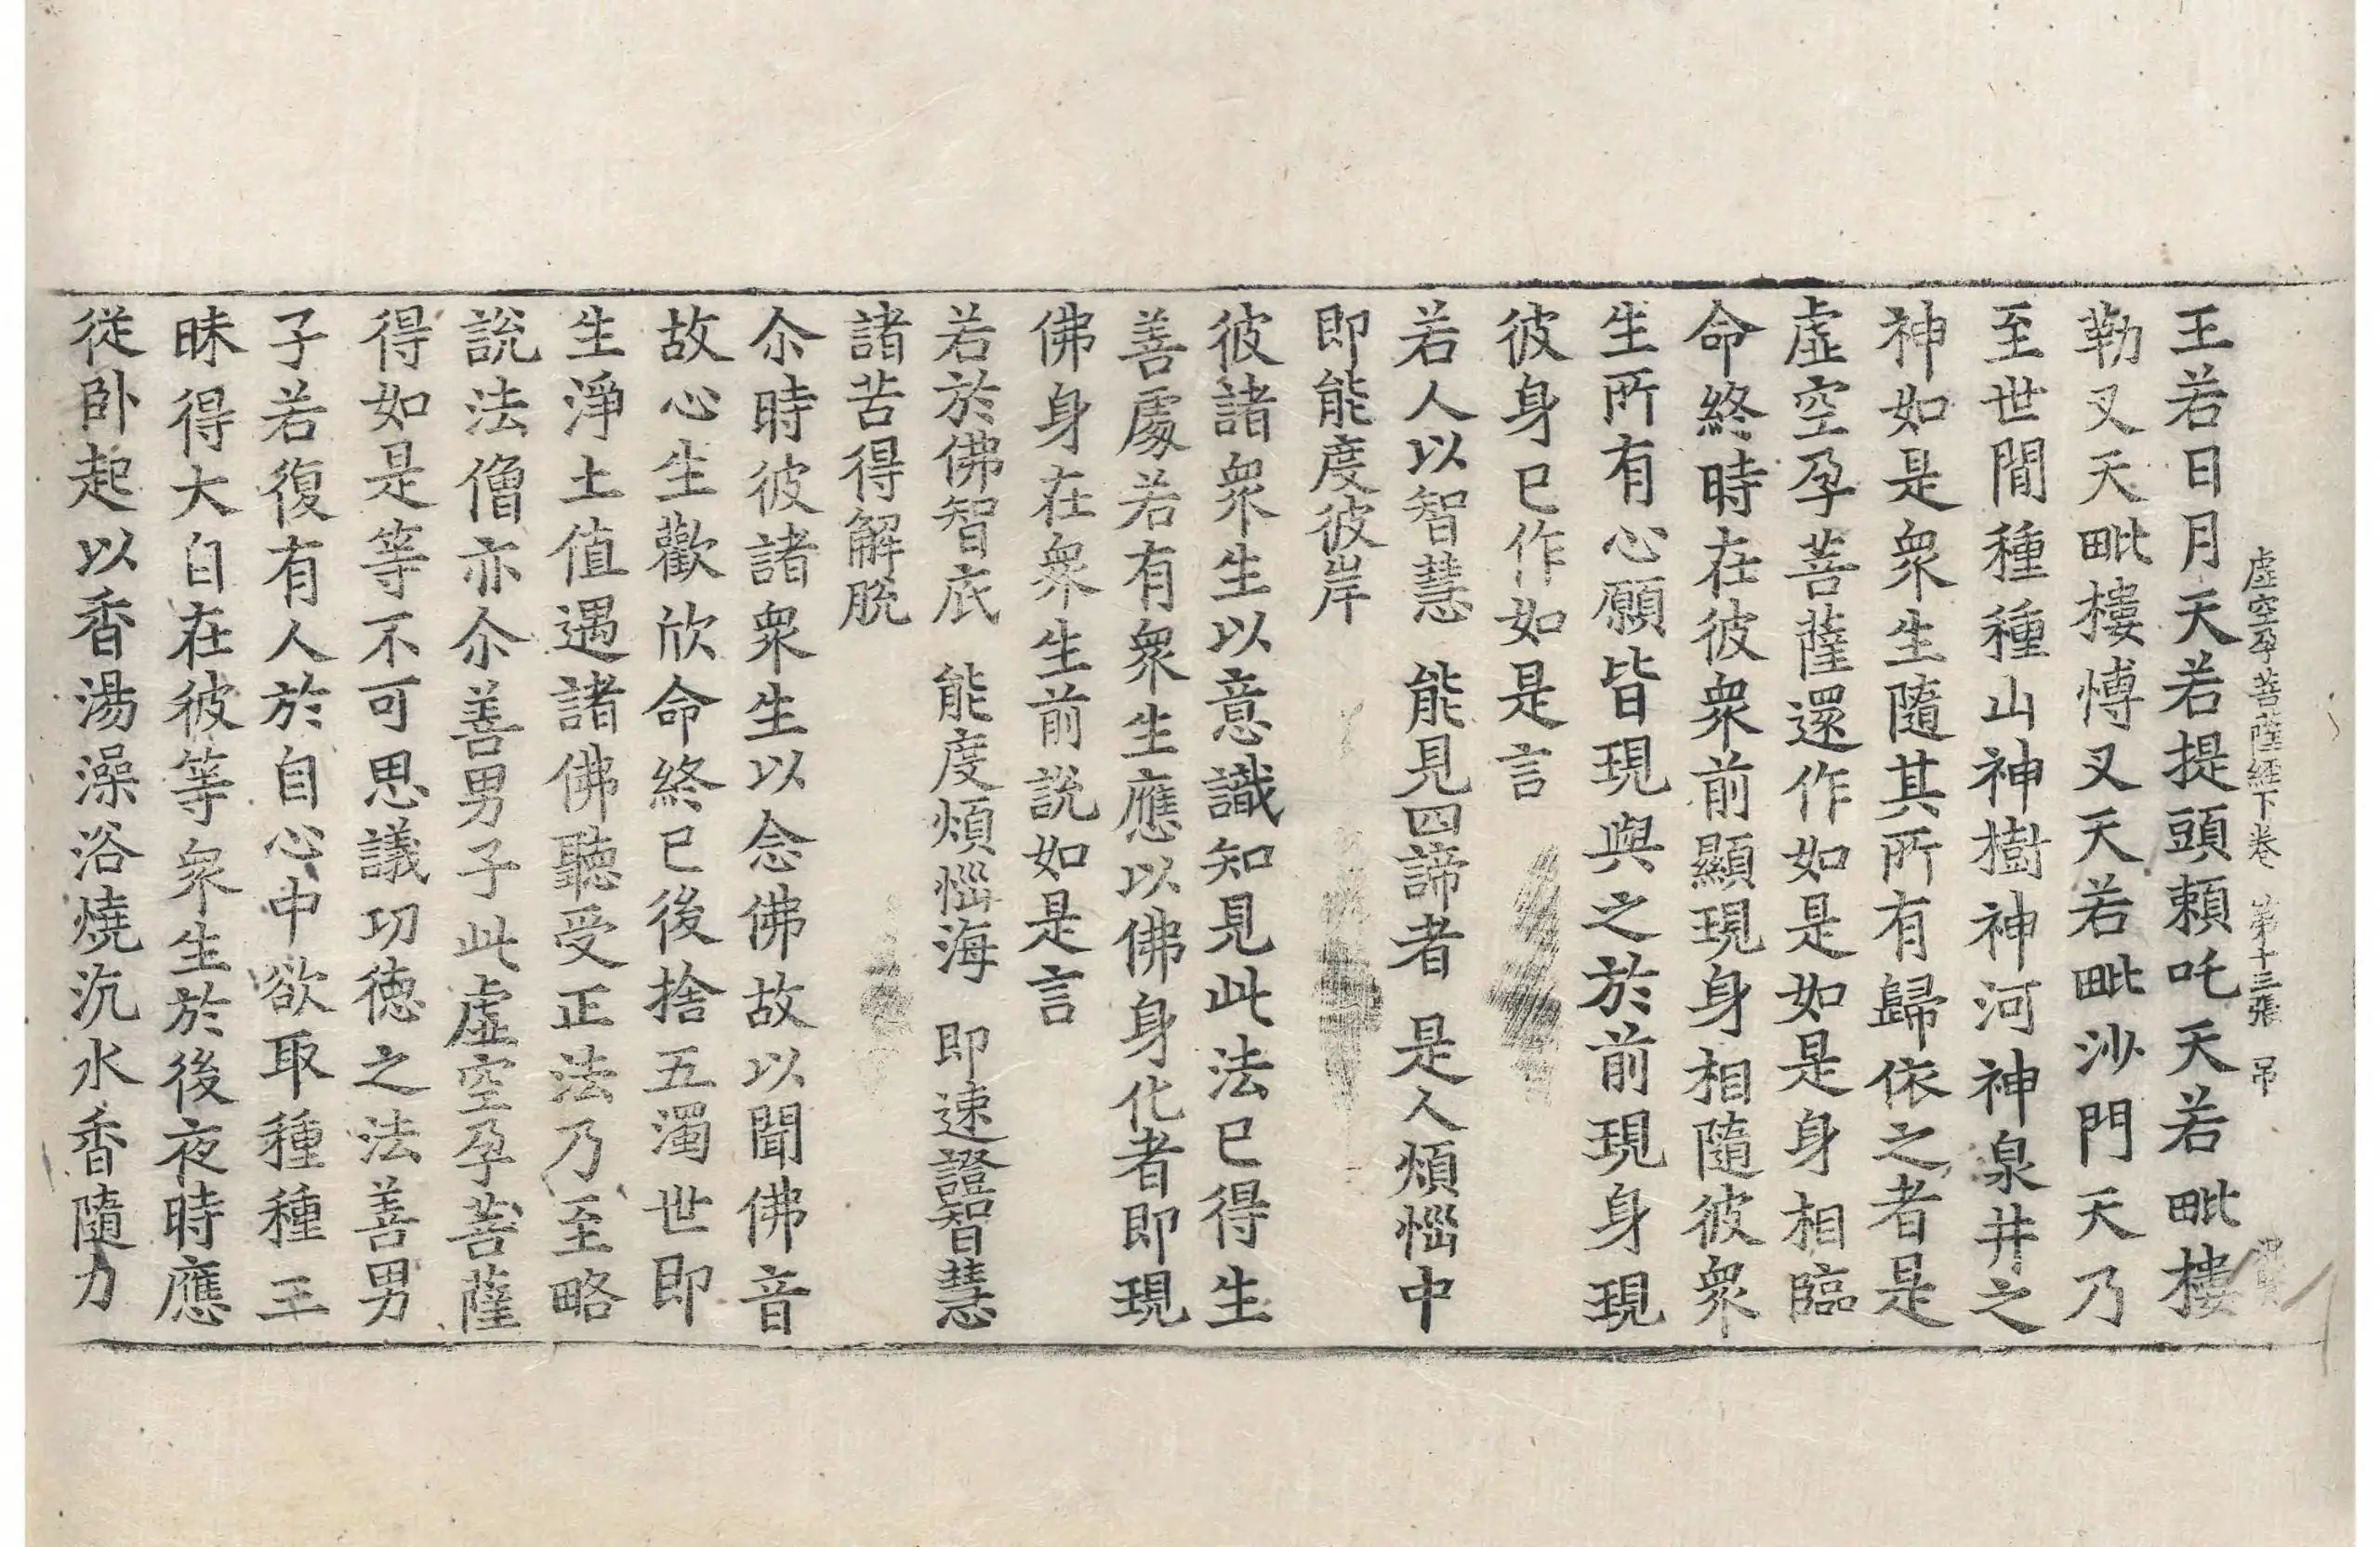 虛空孕菩薩經下卷 第十三張 吊
王若日月天若提頭賴吒天若毗樓
勒叉天毗樓愽叉天若毗沙門天乃
至世間種種山神樹神河神泉井之
神如是衆生隨其所有歸依之者是
虛空孕菩薩還作如是如是身相臨
命終時在彼衆前顯現身相隨彼衆
生所有心願皆現與之於前現身現
彼身已作如是言
若人以智慧 能見四諦者 是人煩惱中
即能度彼岸
彼諸衆生以意識知見此法已得生
善處若有衆生應以佛身化者即現
佛身在衆生前說如是言
若於佛智底 能度煩惱海 即速證智慧
諸苦得解脫
尒時彼諸衆生以念佛故以聞佛音
故心生歡欣命終已後捨五濁世即
生淨土值遇諸佛聽受正法乃至略
說法僧亦尒善男子此虛空孕菩薩
得如是等不可思議功徳之法善男
子若復有人於自心中欲取種種三
昧得大自在彼等衆生於後夜時應
從卧起以香湯澡浴燒沉水香隨力